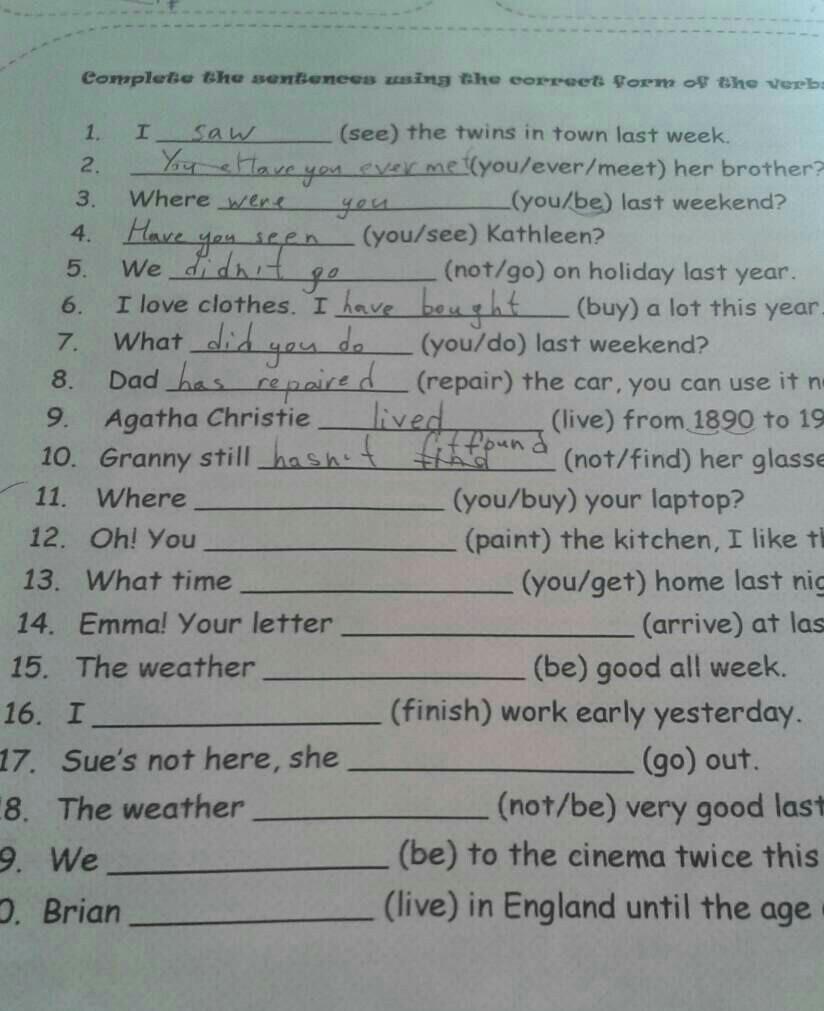 Complete the sentences using the correct form of the verbs
1. I saw (see) the twins in town last week.
2. You Have you ever met (you/ever/meet) her brother?
3. Where were you (you/be) last weekend?
4. Have you seen (you/see) Kathleen?
5. We didn't go (not/go) on holiday last year.
6. I love clothes. I have bought (buy) a lot this year.
7. What did you do (you/do) last weekend?
8. Dad has repaired (repair) the car, you can use it n
9. Agatha Christie lived (live) from 1890 to 19
10. Granny still hasn't find found (not/find) her glasse
11. Where (you/buy) your laptop?
12. Oh! You (paint) the kitchen, I like th
13. What time (you/get) home last nig
14. Emma! Your letter (arrive) at las
15. The weather (be) good all week.
16. I (finish) work early yesterday.
17. Sue's not here, she (go) out.
8. The weather (not/be) very good last
9. We (be) to the cinema twice this
0. Brian (live) in England until the age